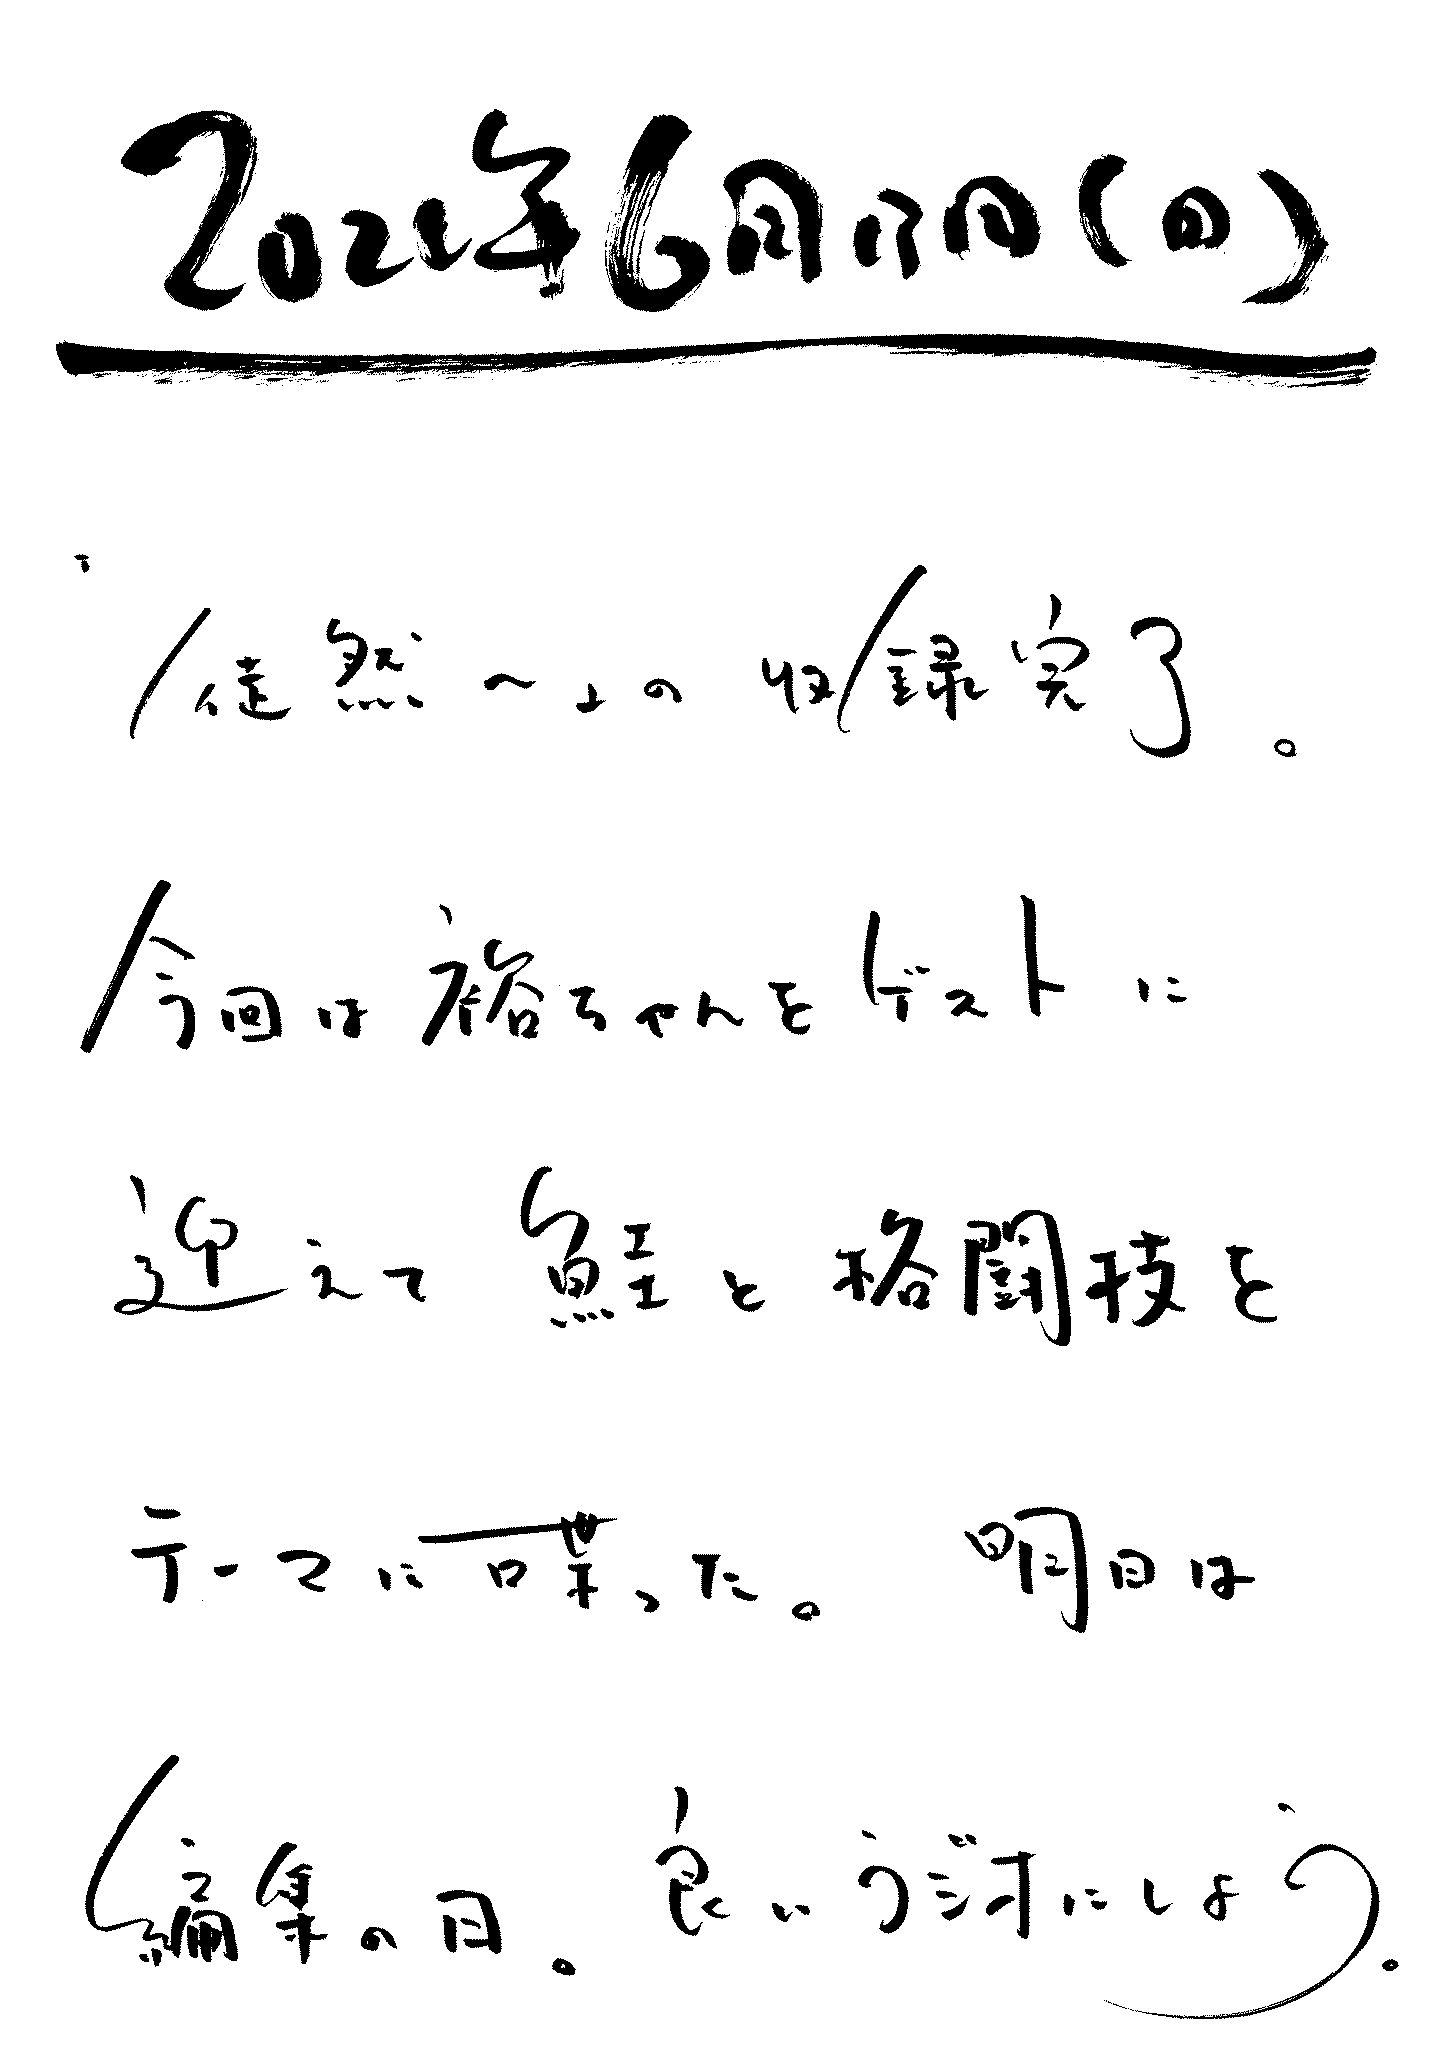 2021年6月13日(日)
徒然〜の 収録完了。
今回は裕ちゃんをゲストに
迎えて 鮭と格闘技を
テーマに喋った。 明日は
編集の日。 良いラジオにしよう。